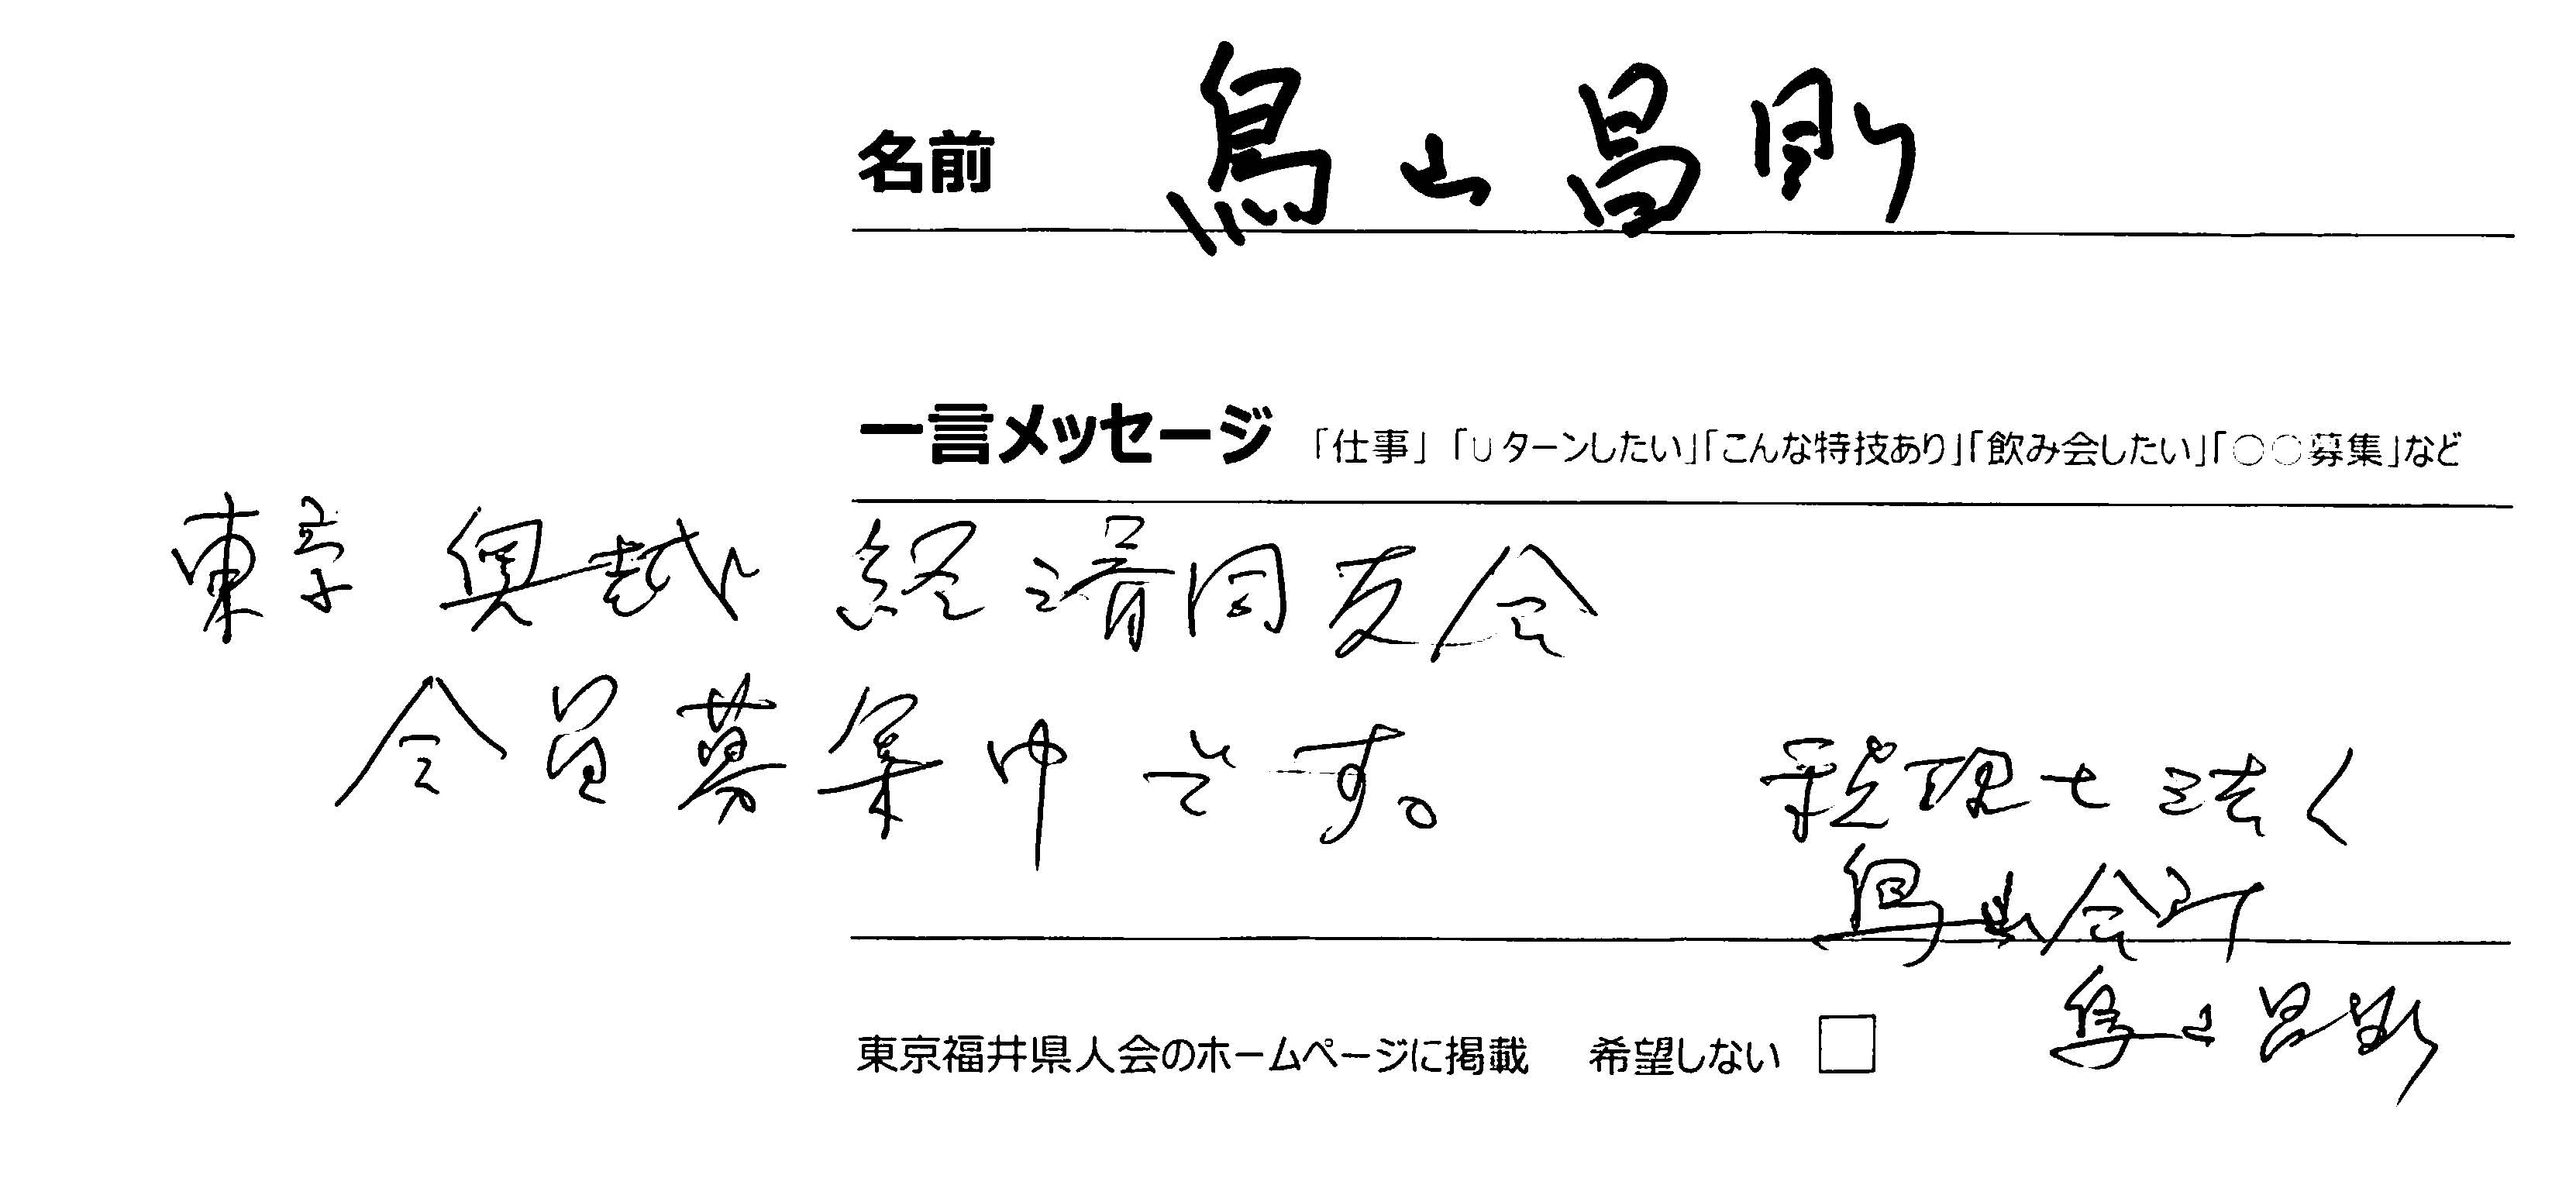 名前 鳥山昌則
一言メッセージ 「仕事」「Uターンしたい」「こんな特技あり」「飲み会したい」「○○募集」など
東京 奥越 経済同友会
会員募集中です。
税理士法人
鳥山会計
鳥山昌則
東京福井県人会のホームページに掲載 希望しない □